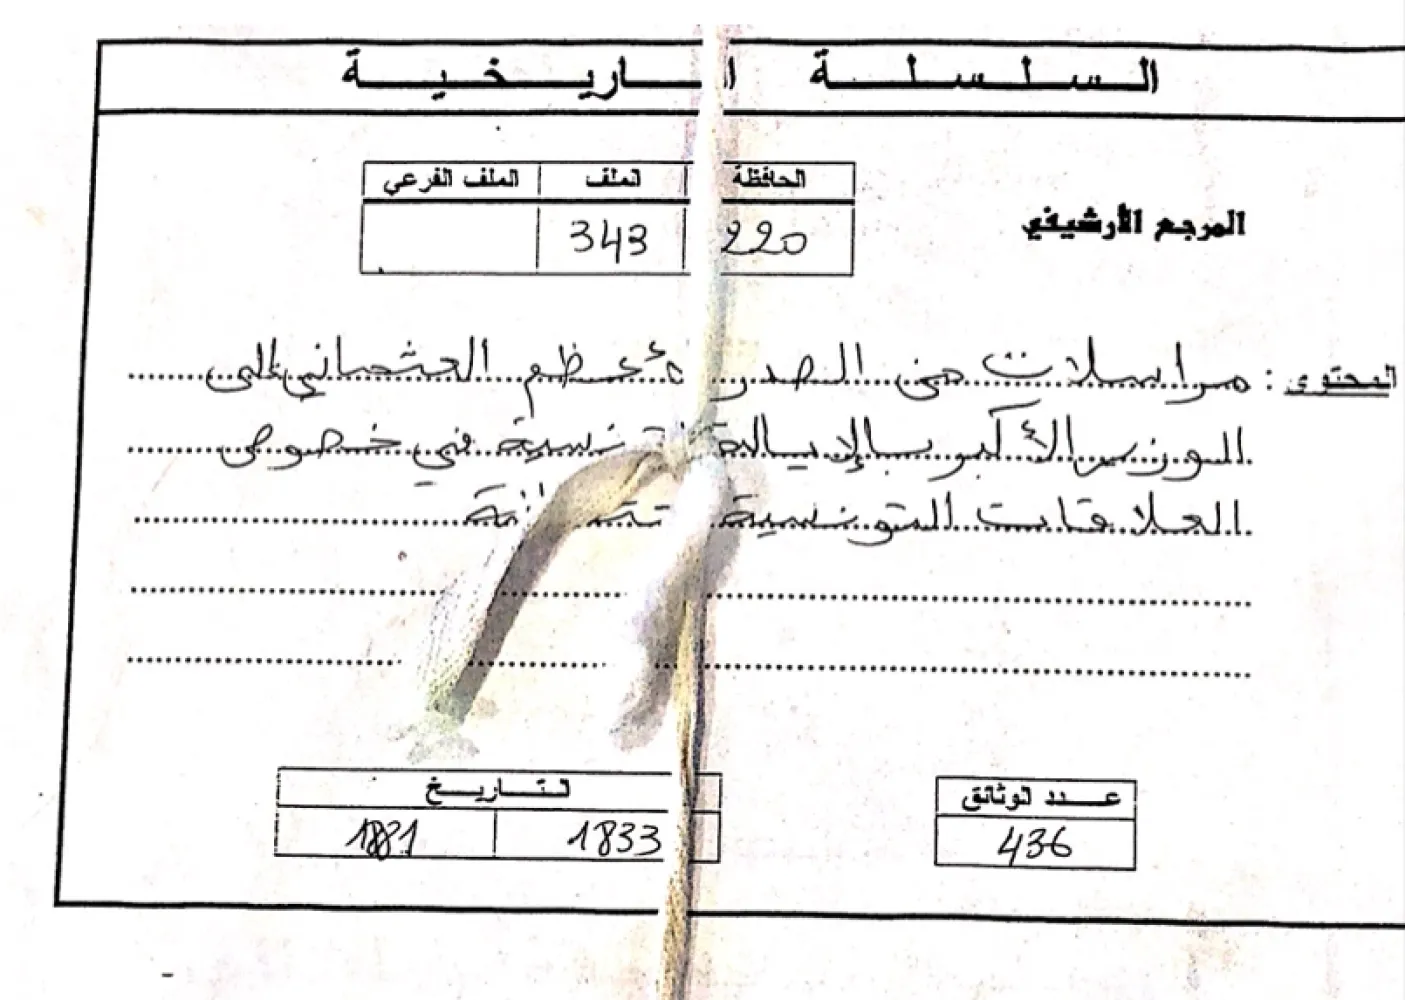 السلسلة التاريخية
الحافظة الملف الملف الفرعي
المرجع الأرشيفي
220 343
المحتوى : مراسلات من الصدر الأعظم العثماني إلى
الوزير الأكبر بالإيالة التونسية في خصوص
العلاقات التونسية
التاريخ
عدد الوثائق
1833 1881
436